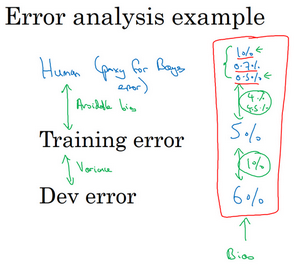 Error analysis example
Human (proxy for Bayes
error)
Avoidable bias
Training error
Variance
Dev error
1%
0.7%
0.5%
4%
4.5%
5%
1%
6%
Bias